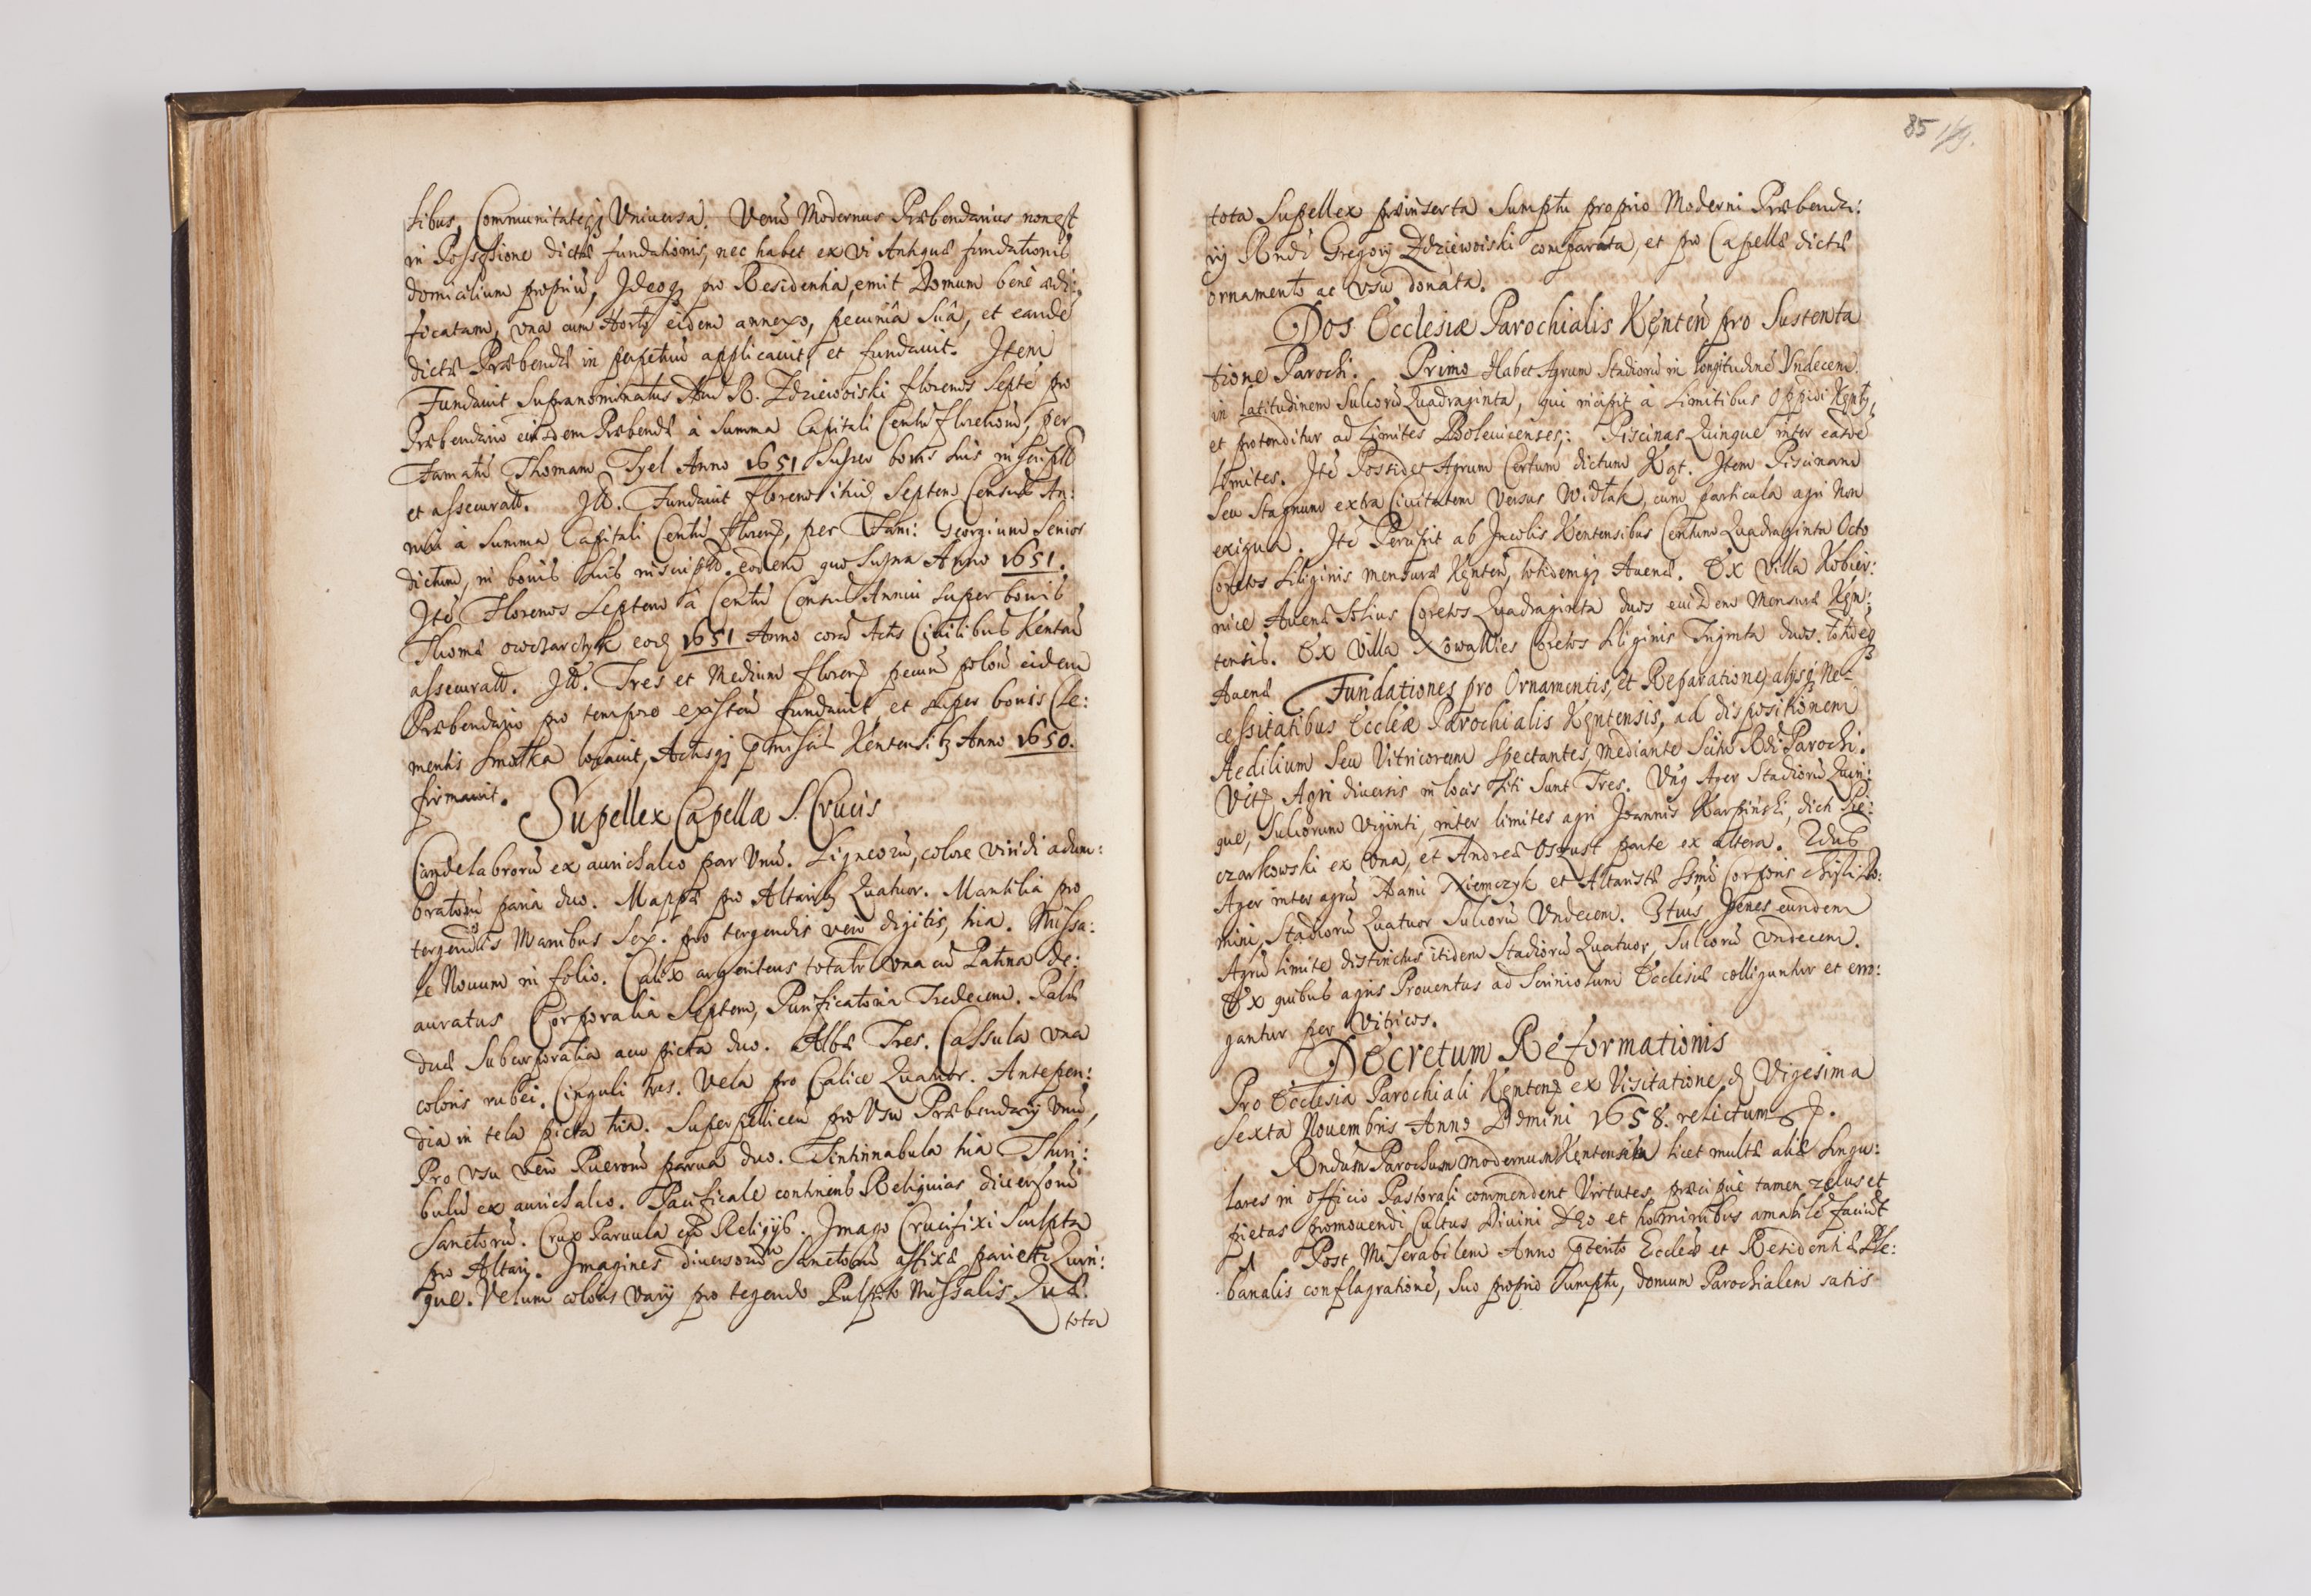 sibus, Communitateq3 Vniuersa. Verũ Modernus Præbendarius non est
in Possessione dictæ fundationis, nec habet ex vi Antiquæ fundationis
domicilium propriũ, Ideoq3 pro Residentia, emit Domum bene ædi:
ficatam, vna cum Horto eidem annexo, pecuniâ suâ, et eandẽ
dictæ Præbendæ in perpetuũ applicauit, et fundauit. Item
Fundauit Supranominatus R. Zdziewoiski florenos Septẽ pro
Præbendario eiusdem Præbendæ à Summa Capitali Centũ florenorũ, per
Famatũ Thomam Tyel Anno 1651 Super bonis suis inscript
et assecurat. It. Fundauit florenos itid Septem Census An:
nui à Summa Capitali Centũ floren, per Fam: Georgium Senior
dictum, in bonis suis inscript. eodem quo supra Anno 1651.
Itẽ Florenos Septem à Centũ Census Annui super bonis
Thomæ owcharchyk eod 1651 Anno corã Actis Ciuilibus Kentens
assecurat. It. Tres et Medium floren pecuniæ polon eidem
Præbendario pro tempore existen fundauit et super bonis Cle:
mentis Smotka locauit, Actisq3 præmissis Kentensib3 Anno 1650.
firmauit.
Supellex Capellæ S. Crucis
Candelabrorũ ex aurichalco par Vnũ. Ligneorũ, colore viridi adum:
bratorũ paria duo. Mappæ pro Altarib3 Quatuor. Mantilia pro
tergendis Manibus Sex. pro tergendis vero digitis, tria. Missa:
le Nouum in folio. Calix argenteus totalr vna cũ Patina de:
auratus Corporalia Septem, Purificatoria Tredecem. Palæ
duæ Subcorporalia acu picta duo. Albæ Tres. Cassula vna
coloris rubei. Cinguli tres. Vela pro Calice Quatuor. Antepen:
dia in tela picta tria. Superpelliceũ pro Vsu Præbendarij Vnũ,
Pro vsu verò Puerorũ parua duo. Tintinnabula tria Thuri:
bulũ ex aurichalco. Pacificale continens Reliquias diuersorũ
Sanctorũ. Crux Paruula cũ Reliqijs. Imago Crucifixi Sculpta
pro Altari. Imagines diuersorũ Sanctorũ affixæ parieti Quin:
que. Velum coloris varij pro tegendo Pulpito Missalis. Quæ
tota
85
tota Supellex præinserta Sumptu proprio Moderni Præbenda:
rij Rndi Gregorij Zdziewoiski comparata, et pro Capellæ dictæ
ornamento ac vsu donata.
Dos Ecclesiæ Parochialis Kęnten pro Sustenta
tione Parochi. Primo Habet Agrum Stadiorũ in longitudinẽ Vndecem.
in Latitudinem Sulcorũ Quadraginta, qui incipit à Limitibus Oppidi Kęnty,
et protenditur ad Limites Bolevicenses: Piscinas Quinque inter easdẽ
limites. Itẽ Possidet Agrum Certum dictum Kąt. Item Piscinam
Seu Stagnum extra Ciuitatem versus Widłak, cum particula agri Non
exigua. Itẽ Percipit ab Incolis Kentensibus Centum Quadraginta Octo
Coretos Siliginis mensuræ Kęnten, totidemq3 Auenæ. Ex villa Kobier:
nice Auenæ solius Coretos Quadraginta duos eiusdem Mensuræ Kęn:
tensis. Ex Villa Nowawies Coretos Siliginis Triginta duos. totidẽq3
Auenæ Fundationes pro Ornamentis, et Reparatione, alijsq3 Ne-
cessitatibus Eccliæ Parochialis Kęntensis, ad dispositionem
Aedilium Seu Vitricorum spectantes, mediante Scitu Rdi Parochi.
Vit3 Agri diuersis in locis siti Sunt Tres. Vnq Ager Stadiorũ Quin:
que, Sulcorum Viginti, inter limites agri Joannis Karpiński, dicti Pie:
czarkowski ex vna, et Andreæ Oszust parte ex altera. 2dus
Ager inter agrũ Adami Niemczyk et Altaristæ Ssmi Corporis Christi Do:
mini, Stadiorũ Quatuor Sulcorũ Vndecem. 3tius Penes eundem
Agrũ limite distinctus itidem Stadiorũ Quatuor, Sulcorũ vndecem.
Ex quibus agris Prouentus ad Scriniolum Ecclesiæ colliguntur et erro:
gantur per Vitricos.
Decretum Reformationis
Pro Ecclesia Parochiali Kęnten ex Visitatione, d Vigesima
Sexta Nouembris Anno Domini 1658. relictum.
Rndũm Parochum modernum Kentensem licet multæ aliæ singu:
lares in officio Pastorali commendent Virtutes, præcipuè tamen zelus et
pietas promouendi Cultus Diuini DEo et hominibus amabilẽ faciũt
Post Miserabilem Anno præterito Eccliæ et Residentiæ Ple:
banalis conflagrationẽ, suo proprio sumptu, domum Parochialem satis